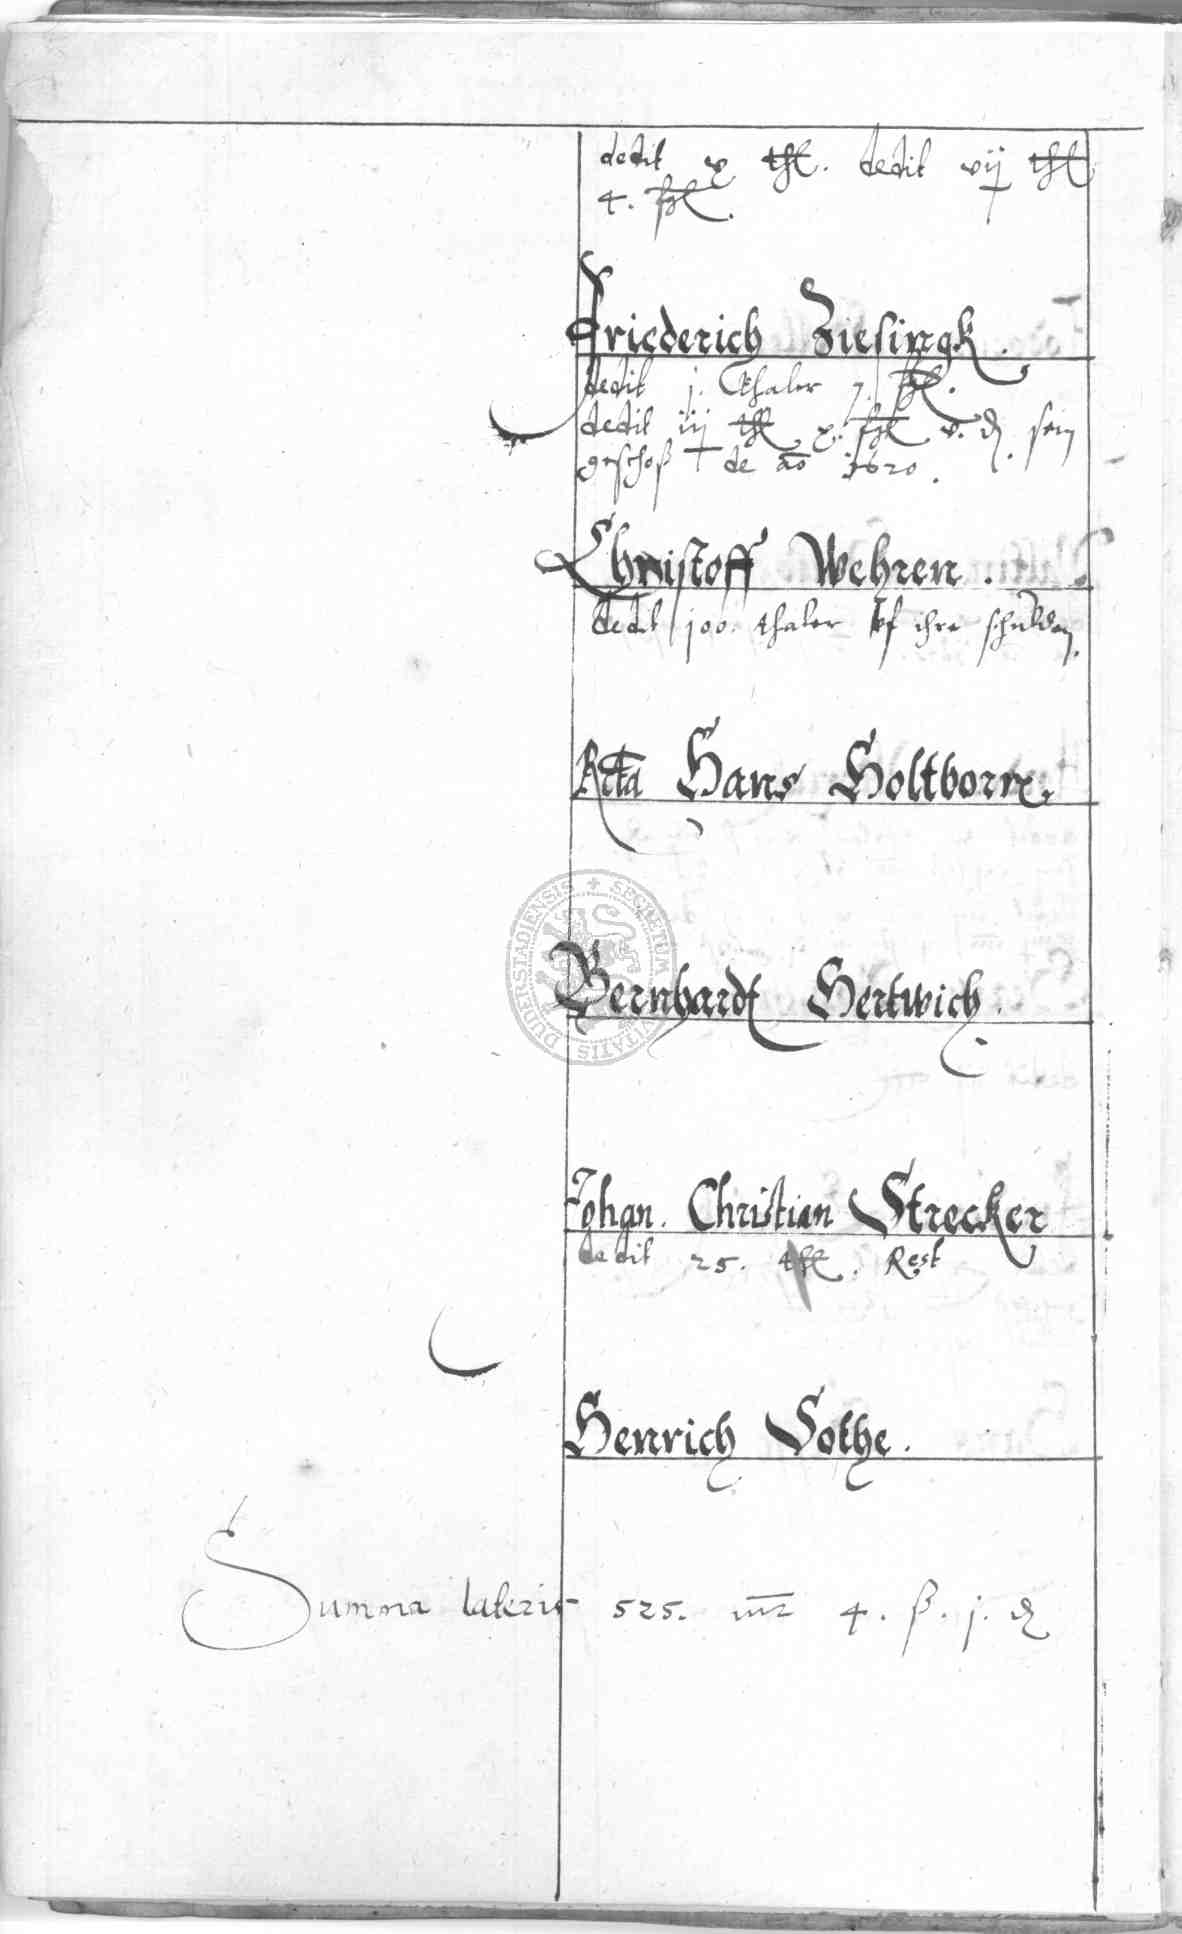 dedit x thl. dedit vij thl
4. ßgl.
Friederich Ziesingk.
dedit j. thaler 7. ßgl.
dedit iij thl x. ßgl v. d. sein
geschoß de ao 1620.
Christoff Wehren.
dedit 100. thaler vf ihre schulden.
Rtta Hans Holtborn.
Bernhardt Hertwich.
Johan. Christian Strecker
dedit 25. thl. Rest
Henrich Sothe.
Summa lateris 525. mr 4. ß. j. d
SECRETUM CIVITATIS DUDERSTADIENSIS